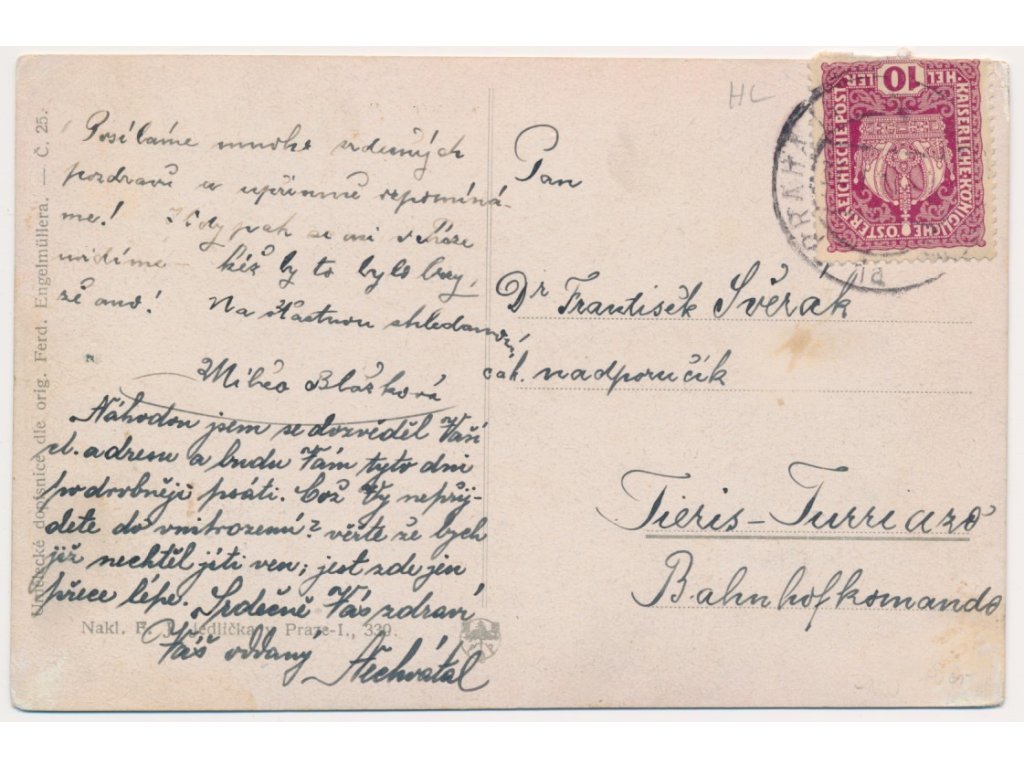 Posíláme mnoho srdečných
pozdravů a upřímně vzpomíná-
me! Kdy pak se asi v Praze
uvidíme – kéž by to bylo brzy,
že ano! Na šťastnou shledanou!
Milča Blažková
Náhodou jsem se dozvěděl Vaši
ct. adresu a budu Vám tyto dni
podrobněji psáti. Což Vy nepřij-
dete do vnitrozemí? věřte že bych
již nechtěl jíti ven; jest zde jen
přece lépe. Srdečně Vás zdraví
Váš oddaný Nechvátal
HL
Pan
Dr František Svěrak
c a k. nadporučík
Pieris-Turriazo
Bahnhofkomando
KAISERLICHE KÖNIGLICHE ÖSTERREICHISCHE POST
10
HELLER
PRAHA
Umělecké dopisnice dle orig. Ferd. Engelmüllera. — Č. 25.
Nakl. F. J. Jedlička, Praze-I., 339.